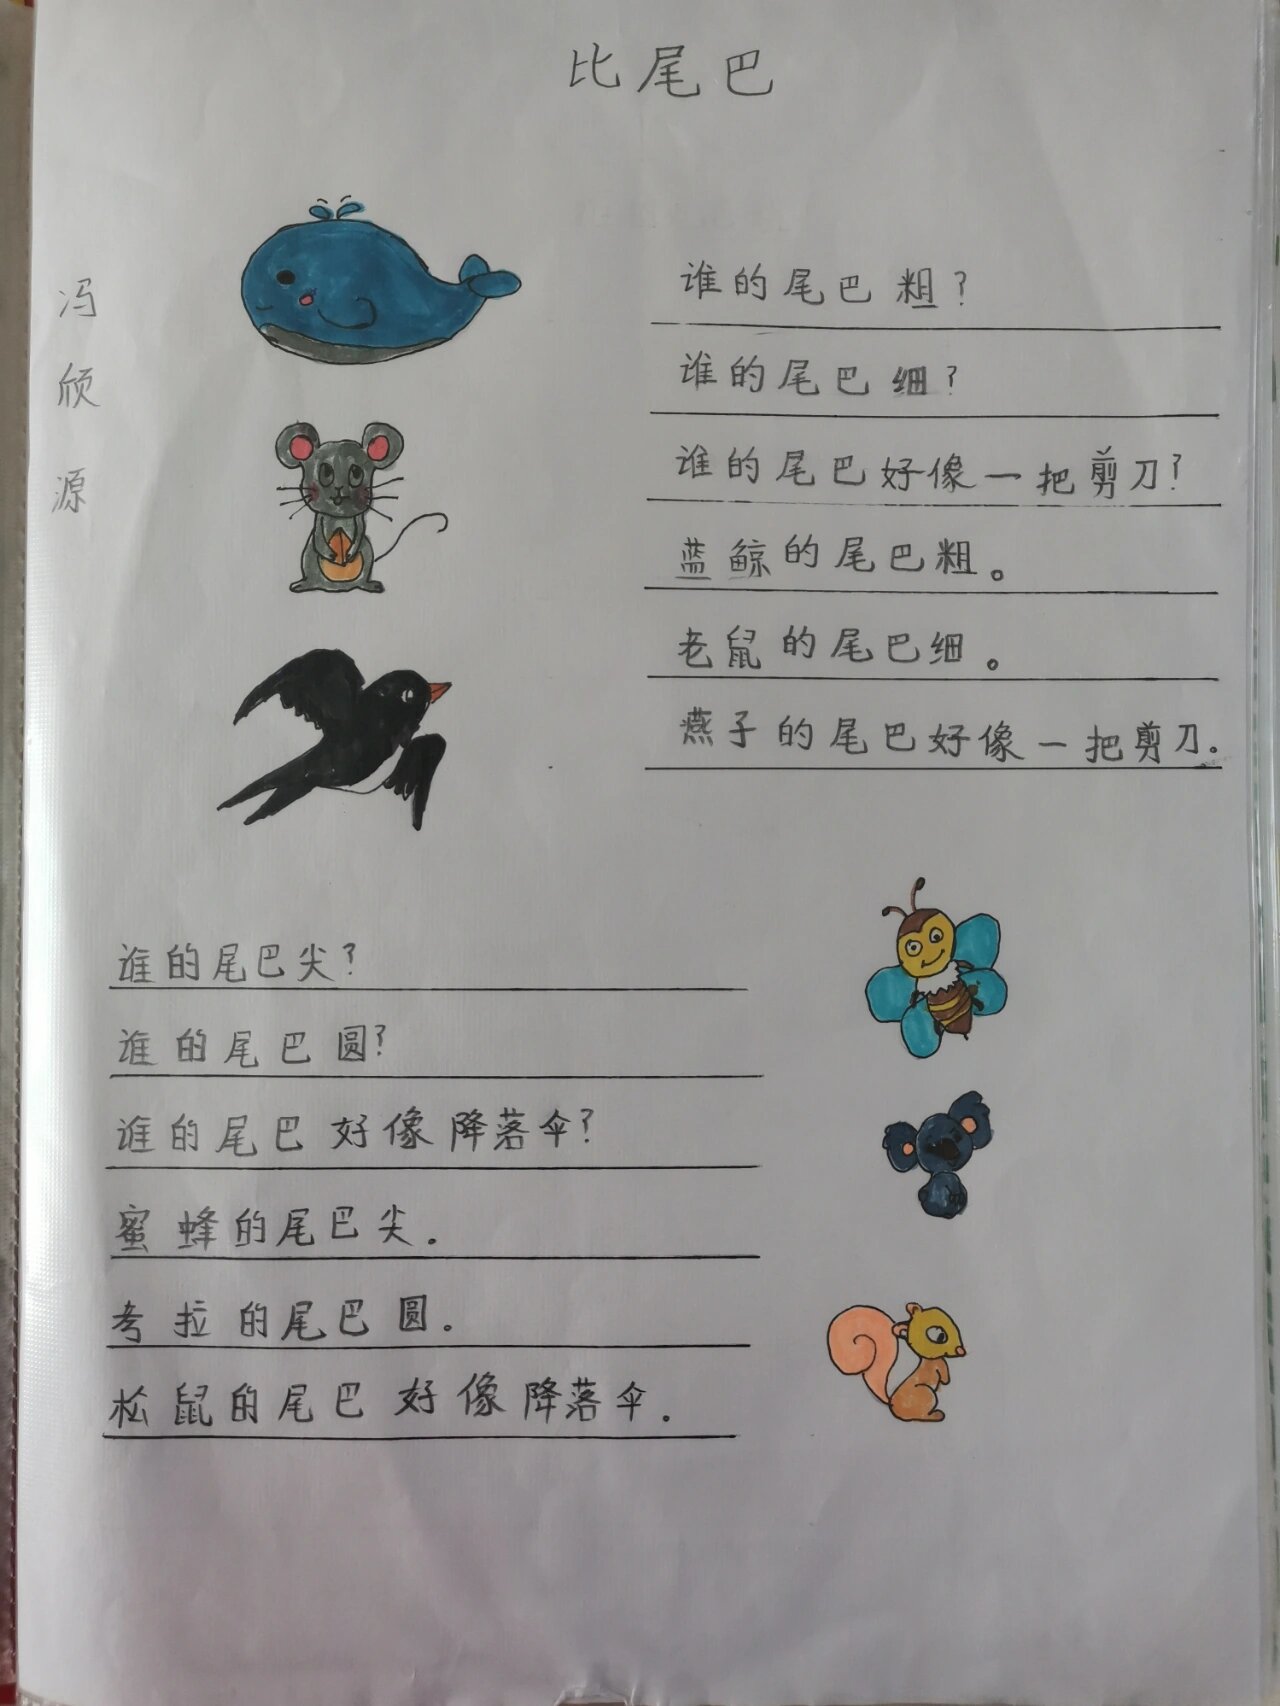 比尾巴
冯
颀
源
谁的尾巴粗?
谁的尾巴细?
谁的尾巴好像一把剪刀?
蓝鲸的尾巴粗。
老鼠的尾巴细。
燕子的尾巴好像一把剪刀.
谁的尾巴尖?
谁的尾巴圆?
谁的尾巴好像降落伞?
蜜蜂的尾巴尖.
考拉的尾巴圆.
松鼠的尾巴好像降落伞.